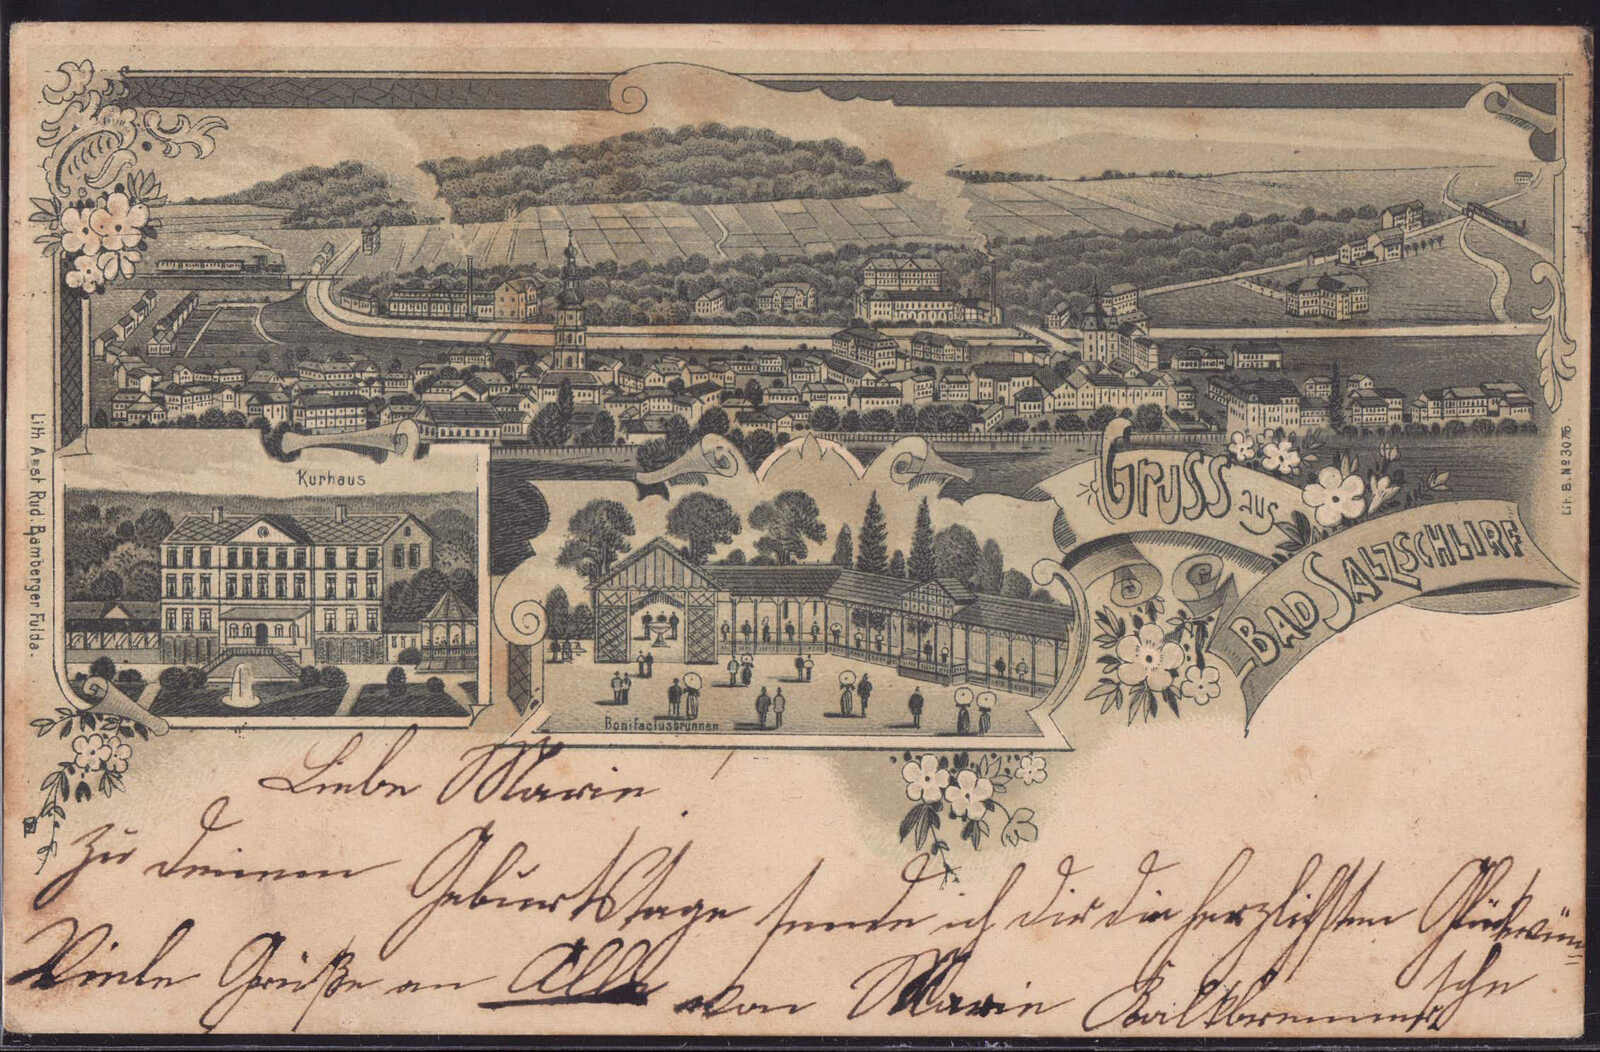 Kurhaus
Bonifaciusbrunnen
Gruss aus
Bad Salzschlirf
Lith. Anst. Rud. Bamberger Fulda.
Lit. B. No 3076.
Liebe Marie
Zu deinem Geburtstage sende ich dir die herzlichsten Glückwün=
sche
Viele Grüße an Alle von Marie